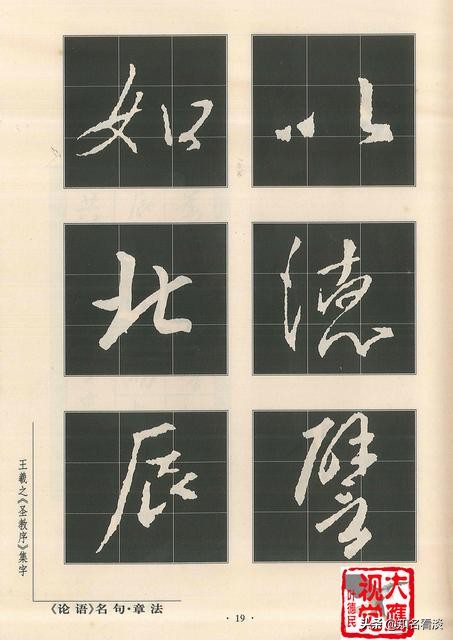 以德譬
如北辰
王羲之《圣教序》集字
《论语》名句·章法
·19·
大鹰
视觉
叶德民
头条@知名看淡